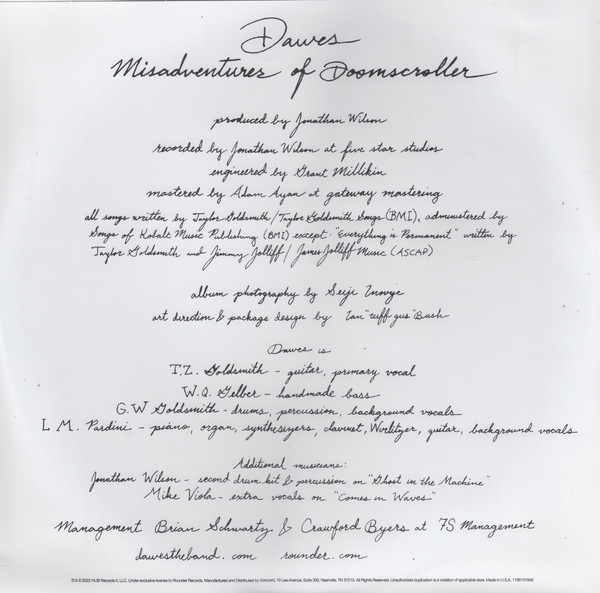 Dawes
Misadventures of Doomscroller
produced by Jonathan Wilson
recorded by Jonathan Wilson at five star studios
engineered by Grant Millikin
mastered by Adam Ayan at gateway mastering
all songs written by Taylor Goldsmith/Taylor Goldsmith Songs (BMI), administered by
Songs of Kobalt Music Publishing (BMI) except "Everything is Permanent" written by
Taylor Goldsmith and Jimmy Jolliff/ James Jolliff Music (ASCAP)
album photography by Seiji Inouye
art direction & package design by Ian "ruff gus" Bush
Dawes is
T.Z. Goldsmith - guitar, primary vocal
W.Q. Gelber - handmade bass
G.W Goldsmith - drums, percussion, background vocals
L.M. Pardini - piano, organ, synthesizers, clavinet, Wurlitzer, guitar, background vocals
Additional musicians:
Jonathan Wilson - second drum kit & percussion on "Ghost in the Machine"
Mike Viola - extra vocals on "Comes in Waves"
Management Brian Schwartz & Crawford Byers at 7S Management
dawestheband.com rounder.com
℗ & © 2022 HUB Records II, LLC. Under exclusive license to Rounder Records. Manufactured and Distributed by Concord, 10 Lea Avenue, Suite 300, Nashville, TN 37210. All Rights Reserved. Unauthorized duplication is a violation of applicable laws. Made in U.S.A.